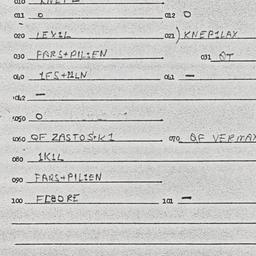 011 O 012 O
020 LEXIL 021) KNEPILAX
030 FARS+PILIEN 031 QT
040 1FS+MLN 041 –
042 –
050 O
060 QF ZASTOS+K1 070 QF VERITAX
080 1K1L
090 FARS+PILIEN
100 FEBORE 101 –